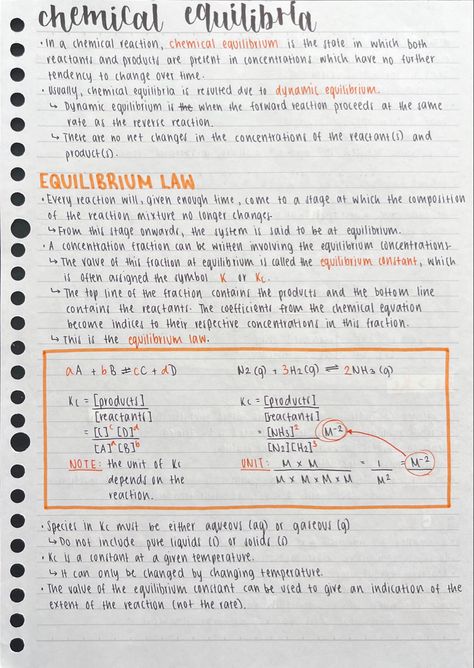 chemical equilibria
• In a chemical reaction, chemical equilibrium is the state in which both
reactants and products are present in concentrations which have no further
tendency to change over time.
• Usually, chemical equilibria is resulted due to dynamic equilibrium.
↳ Dynamic equilibrium is the when the forward reaction proceeds at the same
rate as the reverse reaction.
↳ There are no net changes in the concentrations of the reactant(s) and
product(s).
EQUILIBRIUM LAW
• Every reaction will, given enough time, come to a stage at which the composition
of the reaction mixture no longer changes.
↳ From this stage onwards, the system is said to be at equilibrium.
• A concentration fraction can be written involving the equilibrium concentrations.
↳ The value of this fraction at equilibrium is called the equilibrium constant, which
is often assigned the symbol K or Kc.
↳ The top line of the fraction contains the products and the bottom line
contains the reactants. The coefficients from the chemical equation
become indices to their respective concentrations in this fraction.
↳ This is the equilibrium law.
aA + bB ⇌ cC + dD
Kc = [products]
[reactants]
= [C]ᶜ [D]ᵈ
[A]ᴬ [B]ᵇ
NOTE: the unit of Kc
depends on the
reaction.
N2(g) + 3H2(g) ⇌ 2NH3(g)
Kc = [products]
[reactants]
= [NH3]² M⁻²
[N2][CH2]³
UNIT: M × M = 1 = M⁻²
M × M × M × M M²
• Species in Kc must be either aqueous (aq) or gaseous (g)
↳ Do not include pure liquids (l) or solids (s)
• Kc is a constant at a given temperature.
↳ It can only be changed by changing temperature.
• The value of the equilibrium constant can be used to give an indication of the
extent of the reaction (not the rate).